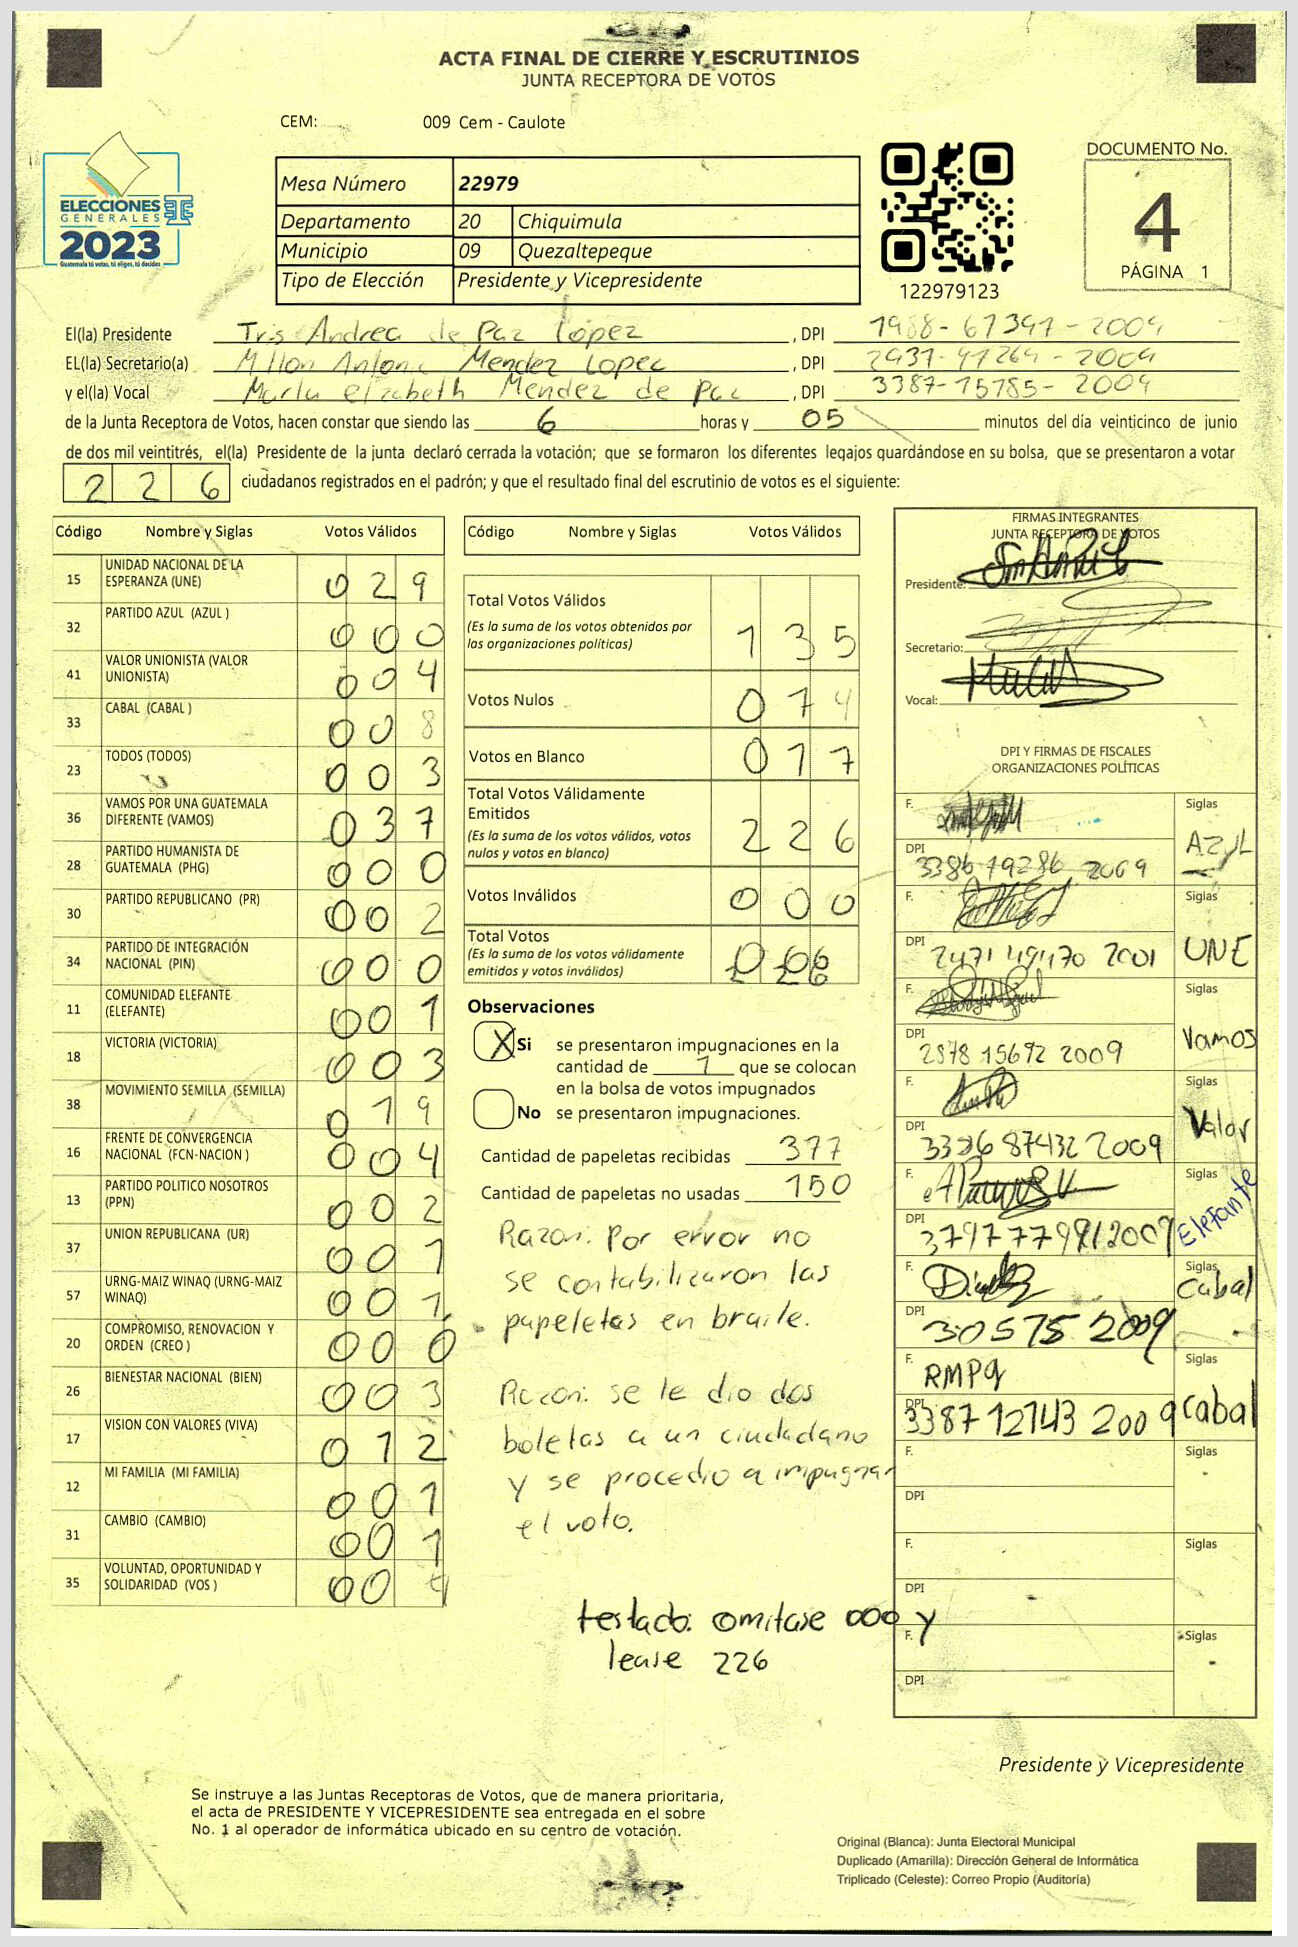 ACTA FINAL DE CIERRE Y ESCRUTINIOS
JUNTA RECEPTORA DE VOTOS
CEM: 009 Cem - Caulote
ELECCIONES
GENERALES
2023
Guatemala tú votas, tú eliges, tú decides
Mesa Número 22979
Departamento 20 Chiquimula
Municipio 09 Quezaltepeque
Tipo de Elección Presidente y Vicepresidente
122979123
DOCUMENTO No.
4
PÁGINA 1
El(la) Presidente Andrea de Paz López , DPI 1988-67397-2009
EL(la) Secretario(a) Mendez Lopez , DPI 2937-41269-2009
y el(la) Vocal Elizabeth Mendez de Paz , DPI 3387-15785-2009
de la Junta Receptora de Votos, hacen constar que siendo las 6 horas y 05 minutos del día veinticinco de junio
de dos mil veintitrés, el(la) Presidente de la junta declaró cerrada la votación; que se formaron los diferentes legajos guardándose en su bolsa, que se presentaron a votar
226 ciudadanos registrados en el padrón; y que el resultado final del escrutinio de votos es el siguiente:
Código Nombre y Siglas Votos Válidos
15 UNIDAD NACIONAL DE LA ESPERANZA (UNE) 029
32 PARTIDO AZUL (AZUL ) 000
41 VALOR UNIONISTA (VALOR UNIONISTA) 004
33 CABAL (CABAL ) 008
23 TODOS (TODOS) 003
36 VAMOS POR UNA GUATEMALA DIFERENTE (VAMOS) 037
28 PARTIDO HUMANISTA DE GUATEMALA (PHG) 000
30 PARTIDO REPUBLICANO (PR) 002
34 PARTIDO DE INTEGRACIÓN NACIONAL (PIN) 000
11 COMUNIDAD ELEFANTE (ELEFANTE) 001
18 VICTORIA (VICTORIA) 003
38 MOVIMIENTO SEMILLA (SEMILLA) 019
16 FRENTE DE CONVERGENCIA NACIONAL (FCN-NACION ) 004
13 PARTIDO POLITICO NOSOTROS (PPN) 002
37 UNION REPUBLICANA (UR) 001
57 URNG-MAIZ WINAQ (URNG-MAIZ WINAQ) 001
20 COMPROMISO, RENOVACION Y ORDEN (CREO ) 000
26 BIENESTAR NACIONAL (BIEN) 003
17 VISION CON VALORES (VIVA) 012
12 MI FAMILIA (MI FAMILIA) 001
31 CAMBIO (CAMBIO) 001
35 VOLUNTAD, OPORTUNIDAD Y SOLIDARIDAD (VOS ) 004
Código Nombre y Siglas Votos Válidos
Total Votos Válidos 135
(Es la suma de los votos obtenidos por
las organizaciones políticas)
Votos Nulos 074
Votos en Blanco 017
Total Votos Válidamente
Emitidos 226
(Es la suma de los votos válidos, votos
nulos y votos en blanco)
Votos Inválidos 000
Total Votos 226
(Es la suma de los votos válidamente
emitidos y votos inválidos)
Observaciones
X Si se presentaron impugnaciones en la
cantidad de 1 que se colocan
en la bolsa de votos impugnados
No se presentaron impugnaciones.
Cantidad de papeletas recibidas 377
Cantidad de papeletas no usadas 150
Razon: Por error no
se contabilizaron las
papeletas en braile.
Razon: se le dio dos
boletas a un ciudadano
y se procedio a impugnar
el voto.
testado: omitase 000 y
lease 226
FIRMAS INTEGRANTES
JUNTA RECEPTORA DE VOTOS
Presidente:
Secretario:
Vocal:
DPI Y FIRMAS DE FISCALES
ORGANIZACIONES POLÍTICAS
F. Siglas AZUL
DPI 3386 79286 2009
F. Siglas UNE
DPI 2471 49470 2001
F. Siglas Vamos
DPI 2878 15692 2009
F. Siglas Valor
DPI 3326 87432 2009
F. Siglas Elefante
DPI
F. Siglas Cabal
DPI 30575 2009
F. RMPq Siglas Cabal
DPI 3387 12143 2009
F. Siglas
DPI
F. Siglas
DPI
F. Siglas
DPI
Presidente y Vicepresidente
Se instruye a las Juntas Receptoras de Votos, que de manera prioritaria,
el acta de PRESIDENTE Y VICEPRESIDENTE sea entregada en el sobre
No. 1 al operador de informática ubicado en su centro de votación.
Original (Blanca): Junta Electoral Municipal
Duplicado (Amarilla): Dirección General de Informática
Triplicado (Celeste): Correo Propio (Auditoría)